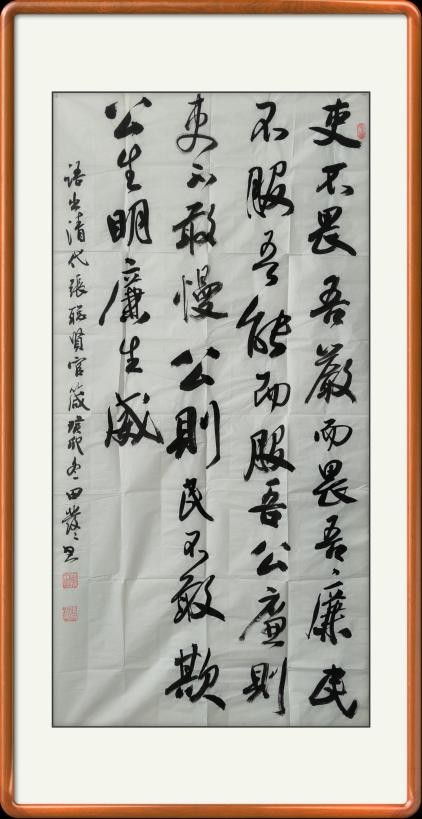 吏不畏吾嚴而畏吾廉民
不服吾能而服吾公廉則
吏不敢慢公則民不敢欺
公生明廉生威
語出清代張聰賢官箴癸卯冬田